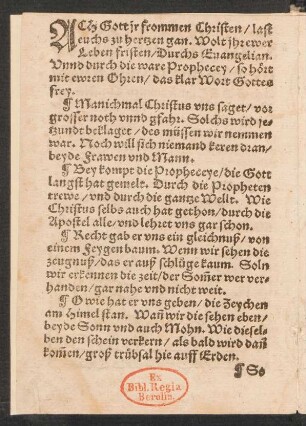 ACh Gott jr frommen Christen / last
euchs zu hertzen gan. Wolt jhr ewer
Leben fristen / Durchs Euangelian.
Vnnd durch die ware Prophecey / so hört
mit ewren Ohren / das klar Wort Gottes
frey.
¶ Manichmal Christus vns saget / vor
grosser noth vnnd gfahr. Solchs wird je-
tzundt beklaget / des müssen wir nemmen
war. Noch will sich niemand keren dran /
beyde Frawen vnd Mann.
¶ Bey kompt die Propheceye / die Gott
langst hat gemelt. Durch die Propheten
trewe / vnd durch die gantze Wellt. Wie
Christus selbs auch hat gethon / durch die
Apostel alle / vnd lehret vns gar schon.
¶ Recht gab er vns ein gleichnuß / von
einem Feygenbaum. Wenn wir sehen die
zeugnuß / das er auff schlüge kaum. Soln
wir erkennen die zeit / der Som̃er wer ver-
handen / gar nahe vnd nicht weit.
¶ O wie hat er vns geben / die Zeychen
am Himel stan. Wañ wir die sehen eben /
beyde Sonn vnd auch Mohn. Wie diesel-
ben den schein verkern / als bald wird dañ
kom̃en / groß trübsal hie auff Erden.
¶ So
Ex
Bibl. Regia
Berolin.